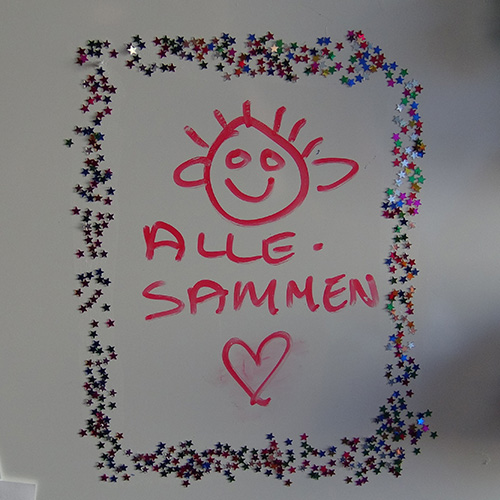 ALLE.
SAMMEN